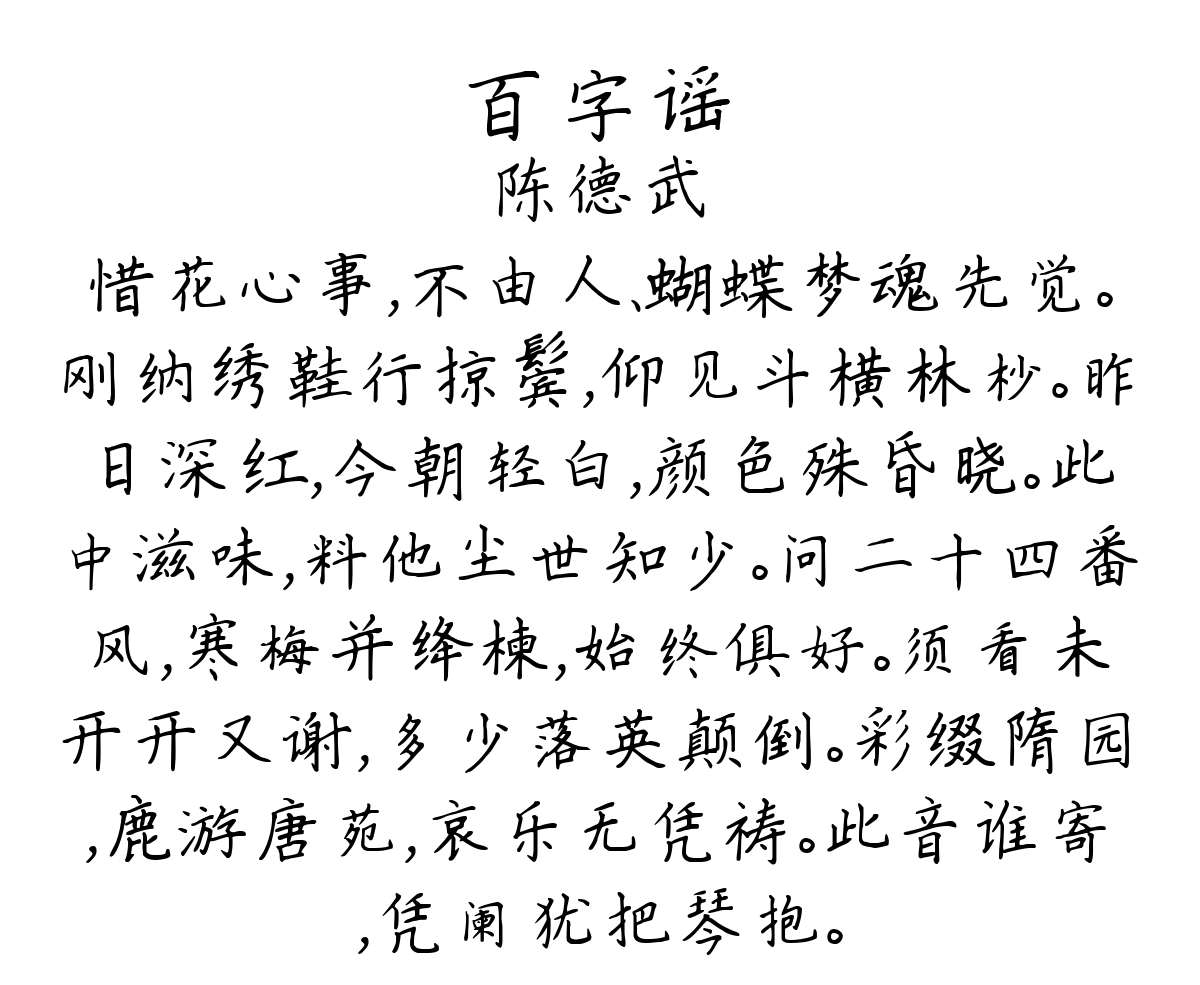 百字谣
陈德武
惜花心事,不由人、蝴蝶梦魂先觉。
刚纳绣鞋行掠鬓,仰见斗横林杪。昨
日深红,今朝轻白,颜色殊昏晓。此
中滋味,料他尘世知少。问二十四番
风,寒梅并绛楝,始终俱好。须看未
开开又谢,多少落英颠倒。彩缀隋园
,鹿游唐苑,哀乐无凭祷。此音谁寄
,凭阑犹把琴抱。